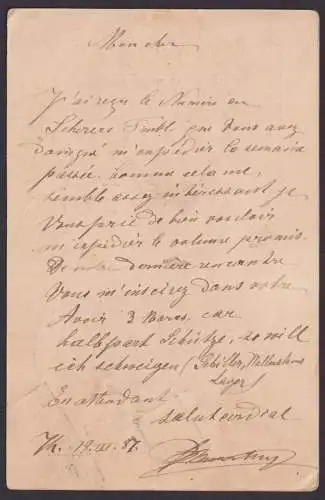 Mon cher
J'ai reçu le Numéro en
que vous avez
daigné m'expédier la semaine
passée. Comme cela me
semble assez intéressant je
vous prie de bon vouloir
m'expédier le volume promis.
De notre dernière rencontre
Vous m'inscirez dans votre
Avoir 3 car
halbpart Schütze, so will
ich schweigen (Schiller, Wallensteins
Lager)
En attendant
salut cordial
19. III. 87.